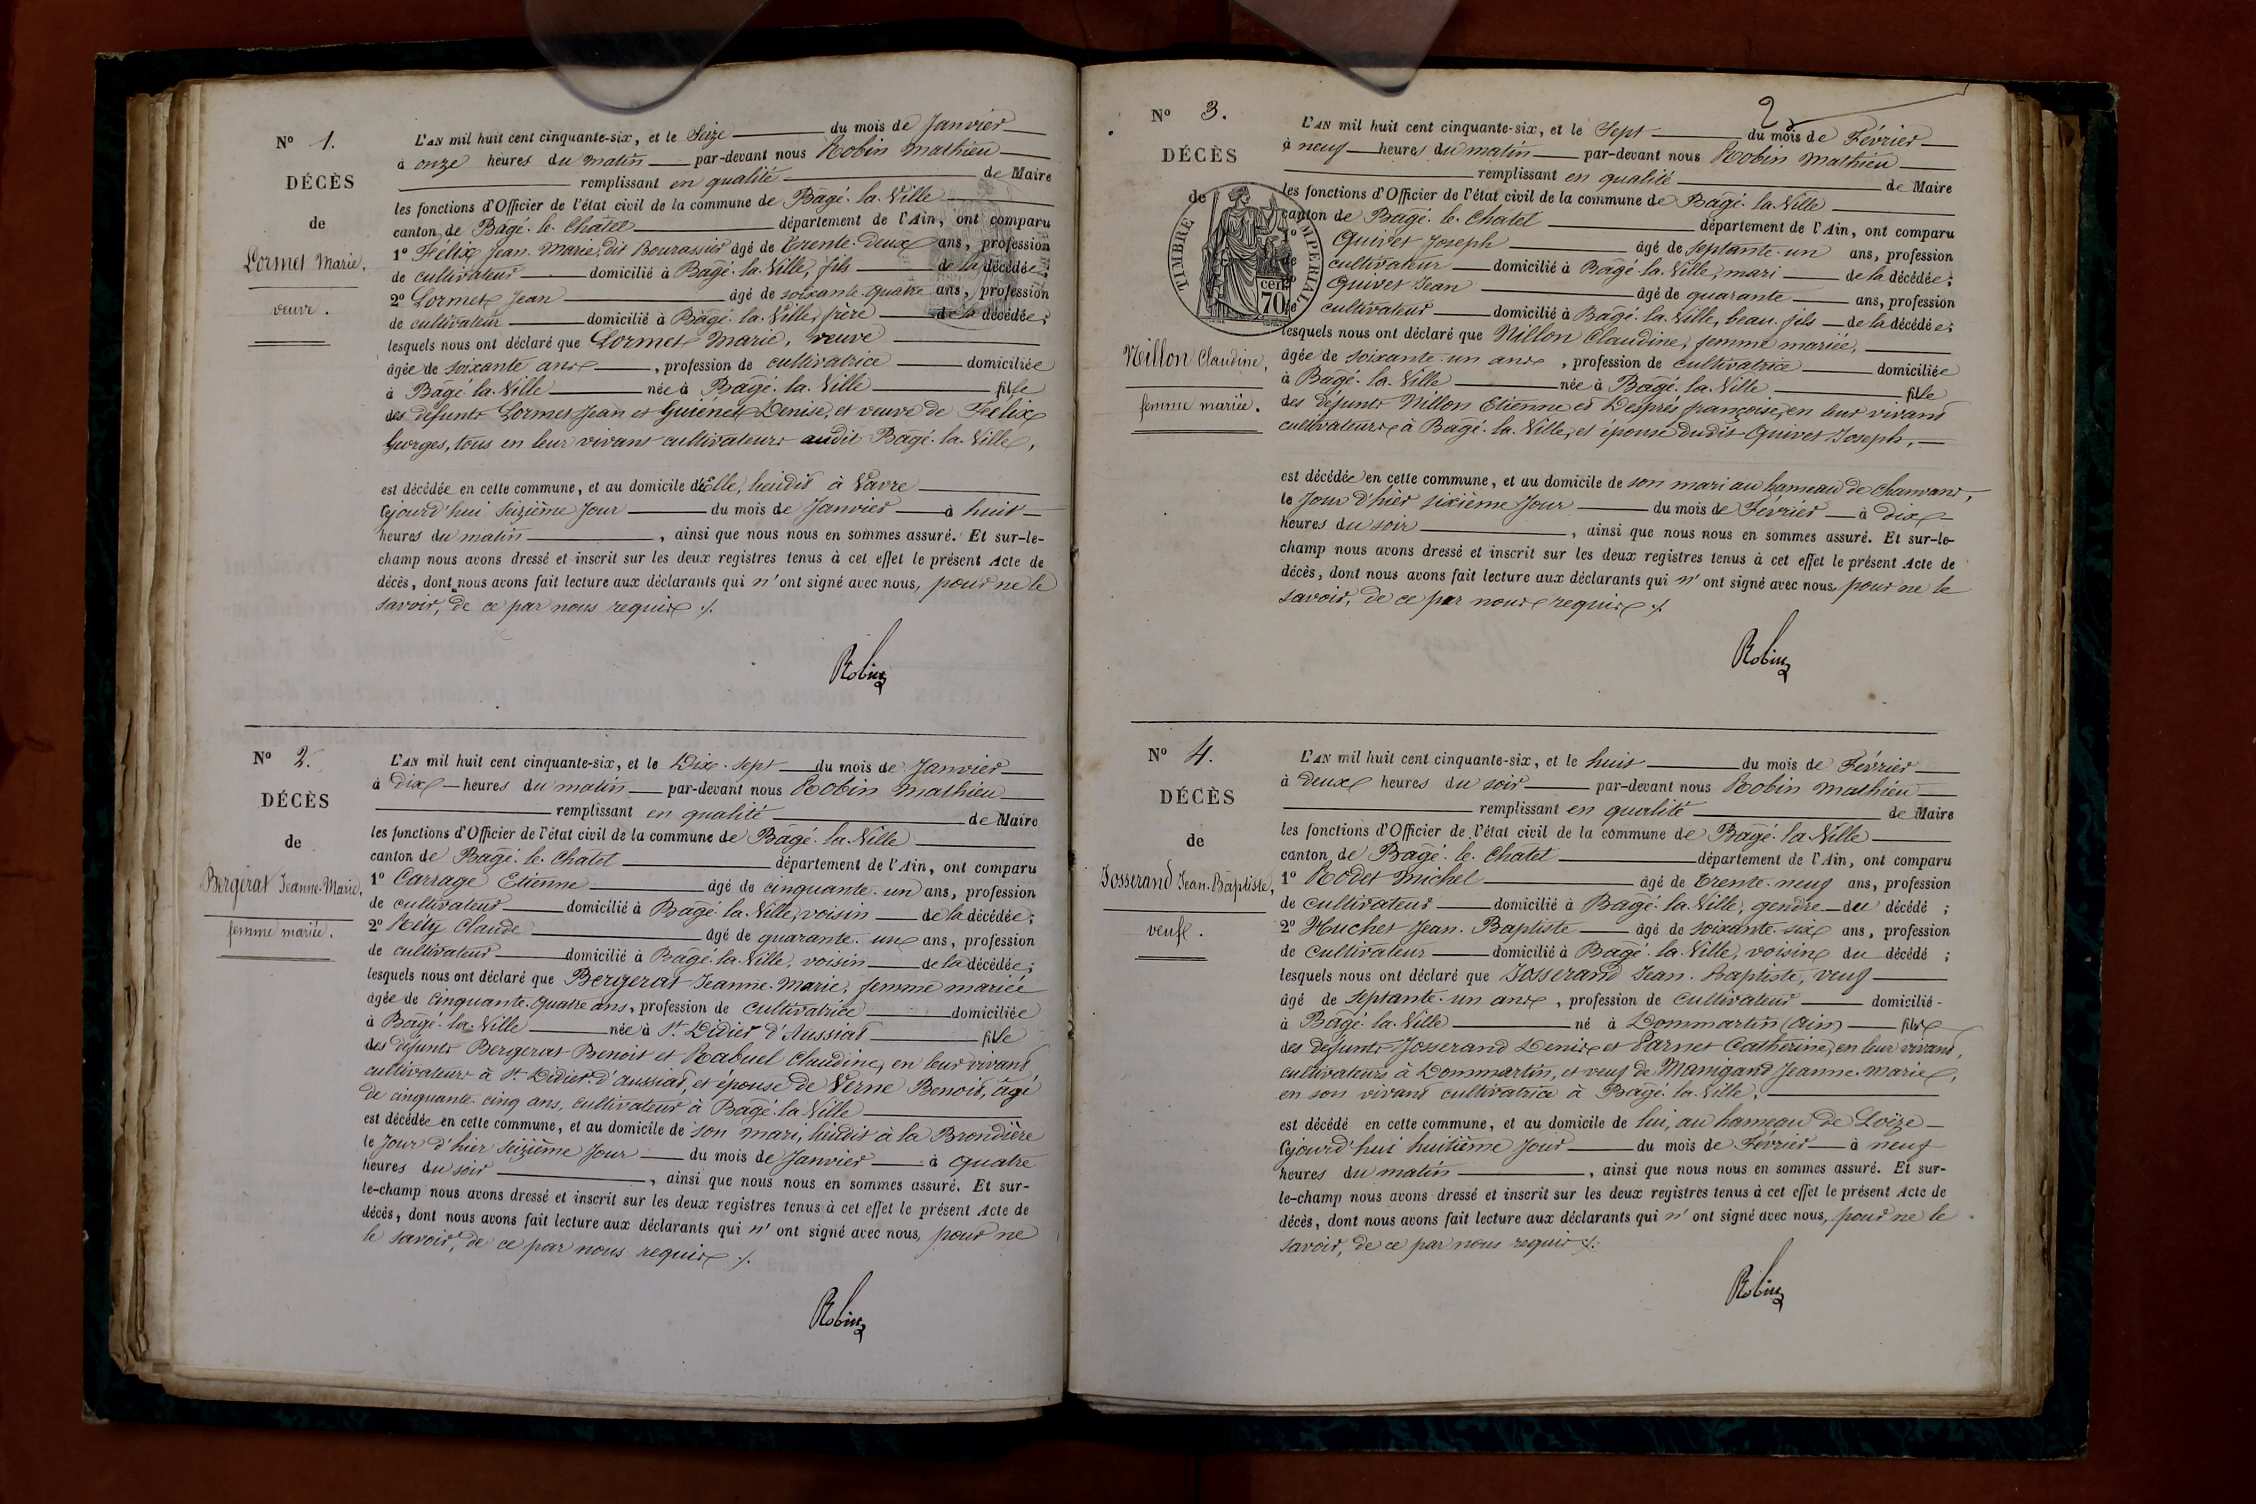 N° 1.
DÉCÈS
de
Lormet Marie,
veuve.
L'AN mil huit cent cinquante-six, et le Seize du mois de Janvier
à onze heures du matin par-devant nous Robin Mathieu
remplissant en qualité de Maire
les fonctions d'Officier de l'état civil de la commune de Bâgé-la-Ville
canton de Bâgé-le-Chatel département de l'Ain, ont comparu
1° Félix Jean-Marie, dit Bourassier âgé de trente-deux ans, profession
de cultivateur domicilié à Bâgé-la-Ville, fils de la décédée;
2° Lormet Jean âgé de soixante-quatre ans, profession
de cultivateur domicilié à Bâgé-la-Ville, frère de la décédée;
lesquels nous ont déclaré que Lormet Marie, veuve
âgée de soixante ans, profession de cultivatrice domiciliée
à Bâgé-la-Ville née à Bâgé-la-Ville fille
des défunts Lormet Jean et Gurenet Denise, et veuve de Félix
Georges, tous en leur vivant cultivateurs audit Bâgé-la-Ville,
est décédée en cette commune, et au domicile d'Elle, lieudit à Vavre
cejourd'hui seizième jour du mois de Janvier à huit
heures du matin, ainsi que nous nous en sommes assuré. Et sur-le-
champ nous avons dressé et inscrit sur les deux registres tenus à cet effet le présent Acte de
décès, dont nous avons fait lecture aux déclarants qui n'ont signé avec nous, pour ne le
savoir, de ce par nous requis ./.
Robin
N° 2.
DÉCÈS
de
Bergerat Jeanne-Marie,
femme mariée.
L'AN mil huit cent cinquante-six, et le Dix-sept du mois de Janvier
à Dix heures du matin par-devant nous Robin Mathieu
remplissant en qualité de Maire
les fonctions d'Officier de l'état civil de la commune de Bâgé-la-Ville
canton de Bâgé-le-Chatel département de l'Ain, ont comparu
1° Carrage Etienne âgé de cinquante-un ans, profession
de cultivateur domicilié à Bâgé-la-Ville, voisin de la décédée;
2° Réty Claude âgé de quarante-un ans, profession
de cultivateur domicilié à Bâgé-la-Ville, voisin de la décédée;
lesquels nous ont déclaré que Bergerat Jeanne-Marie, femme mariée
âgée de cinquante-quatre ans, profession de cultivatrice domiciliée
à Bâgé-la-Ville née à St Didier d'Aussiat fille
des défunts Bergerat Benoit et Rabuel Claudine, en leur vivant,
cultivateurs à St Didier-d'aussiat, et épouse de Verne Benoit, âgé
de cinquante-cinq ans, cultivateur à Bâgé-la-Ville
est décédée en cette commune, et au domicile de son mari, lieudit à la Brondière
le jour d'hier seizième jour du mois de Janvier à quatre
heures du soir, ainsi que nous nous en sommes assuré. Et sur-
le-champ nous avons dressé et inscrit sur les deux registres tenus à cet effet le présent Acte de
décès, dont nous avons fait lecture aux déclarants qui n'ont signé avec nous, pour ne
le savoir, de ce par nous requis ./.
Robin
2
N° 3.
DÉCÈS
de
TIMBRE IMPERIAL
cen.
70
Nillon Claudine,
femme mariée.
L'AN mil huit cent cinquante-six, et le Sept du mois de Février
à neuf heures du matin par-devant nous Robin Mathieu
remplissant en qualité de Maire
les fonctions d'Officier de l'état civil de la commune de Bâgé-la-Ville
canton de Bâgé-le-Chatel département de l'Ain, ont comparu
1° Quivet Joseph âgé de septante-un ans, profession
de cultivateur domicilié à Bâgé-la-Ville, mari de la décédée;
2° Quivet Jean âgé de quarante ans, profession
de cultivateur domicilié à Bâgé-la-Ville, beau-fils de la décédée;
lesquels nous ont déclaré que Nillon Claudine, femme mariée,
âgée de soixante-un ans, profession de cultivatrice domiciliée
à Bâgé-la-Ville née à Bâgé-la-Ville fille
des défunts Nillon Etienne et Desprès françoise, en leur vivant
cultivateurs à Bâgé-la-Ville, et épouse dudit Quivet Joseph,
est décédée en cette commune, et au domicile de son mari au hameau de Chanvant,
le jour d'hier sixième jour du mois de Février à dix
heures du soir, ainsi que nous nous en sommes assuré. Et sur-le-
champ nous avons dressé et inscrit sur les deux registres tenus à cet effet le présent Acte de
décès, dont nous avons fait lecture aux déclarants qui n'ont signé avec nous, pour ne le
savoir, de ce par nous requis ./.
Robin
N° 4.
DÉCÈS
de
Josserand Jean-Baptiste,
veuf.
L'AN mil huit cent cinquante-six, et le huit du mois de Février
à deux heures du soir par-devant nous Robin Mathieu
remplissant en qualité de Maire
les fonctions d'Officier de l'état civil de la commune de Bâgé-la-Ville
canton de Bâgé-le-Chatel département de l'Ain, ont comparu
1° Rodet Michel âgé de trente-neuf ans, profession
de cultivateur domicilié à Bâgé-la-Ville, gendre du décédé;
2° Huchet Jean-Baptiste âgé de soixante-six ans, profession
de cultivateur domicilié à Bâgé-la-Ville, voisin du décédé;
lesquels nous ont déclaré que Josserand Jean-Baptiste, veuf
âgé de septante-un ans, profession de cultivateur domicilié
à Bâgé-la-Ville né à Dommartin (Ain) fils
des défunts Josserand Denis et Carnet Catherine, en leur vivant,
cultivateurs à Dommartin, et veuf de Manigand Jeanne-Marie,
en son vivant cultivatrice à Bâgé-la-Ville,
est décédé en cette commune, et au domicile de lui, au hameau de Loize
cejourd'hui huitième jour du mois de Février à neuf
heures du matin, ainsi que nous nous en sommes assuré. Et sur-
le-champ nous avons dressé et inscrit sur les deux registres tenus à cet effet le présent Acte de
décès, dont nous avons fait lecture aux déclarants qui n'ont signé avec nous, pour ne le
savoir, de ce par nous requis ./.
Robin